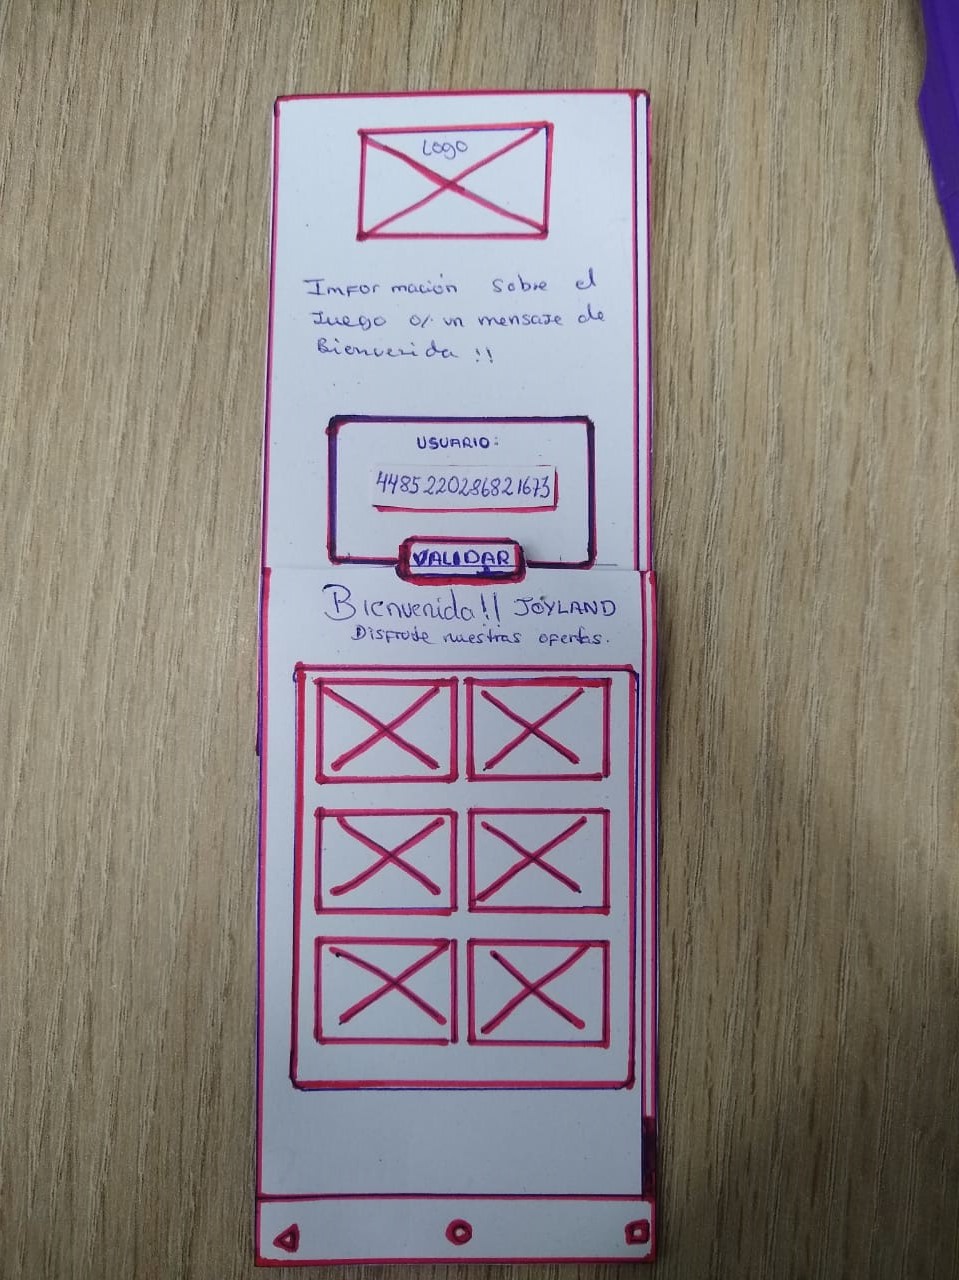 Logo
Imformación sobre el
Juego o/. un mensaje de
Bienvenida !!
USUARIO:
4485220286821673
VALIDAR
Bienvenida!! JOYLAND
Disfrute nuestras ofertas.